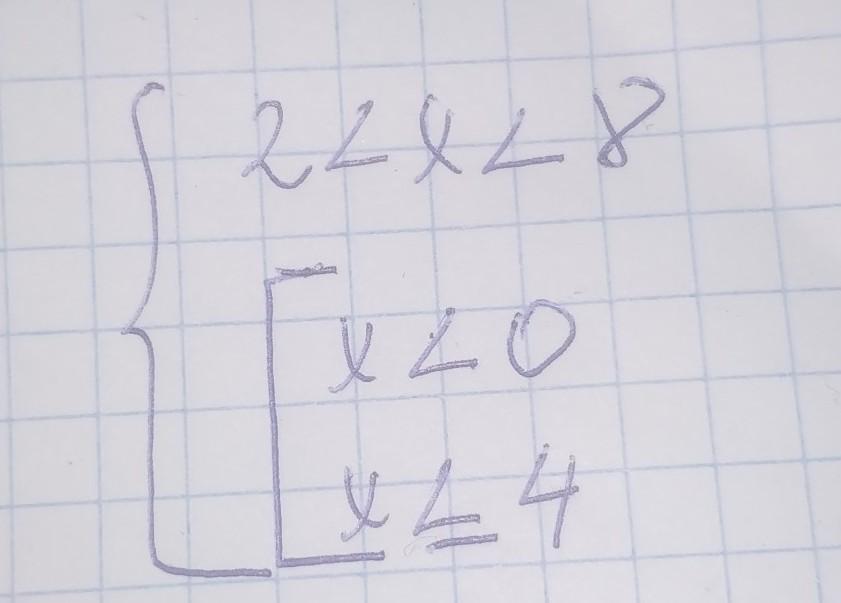 2 < x < 8
x < 0
x ≤ 4